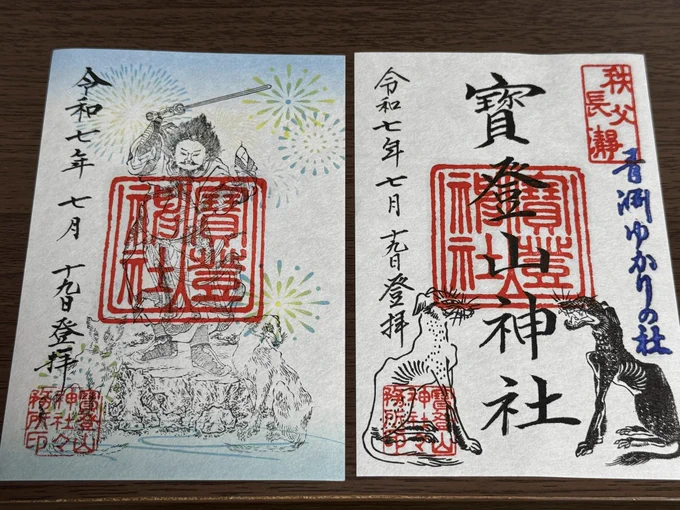 令和七年 七月 十九日 登拝
寶登山
神社
寶登山
神社々
務所印
秩父
長瀞
青渕ゆかりの社
寶登山神社
寶登山
神社
令和七年 七月 十九日 登拝
寶登山
神社々
務所印